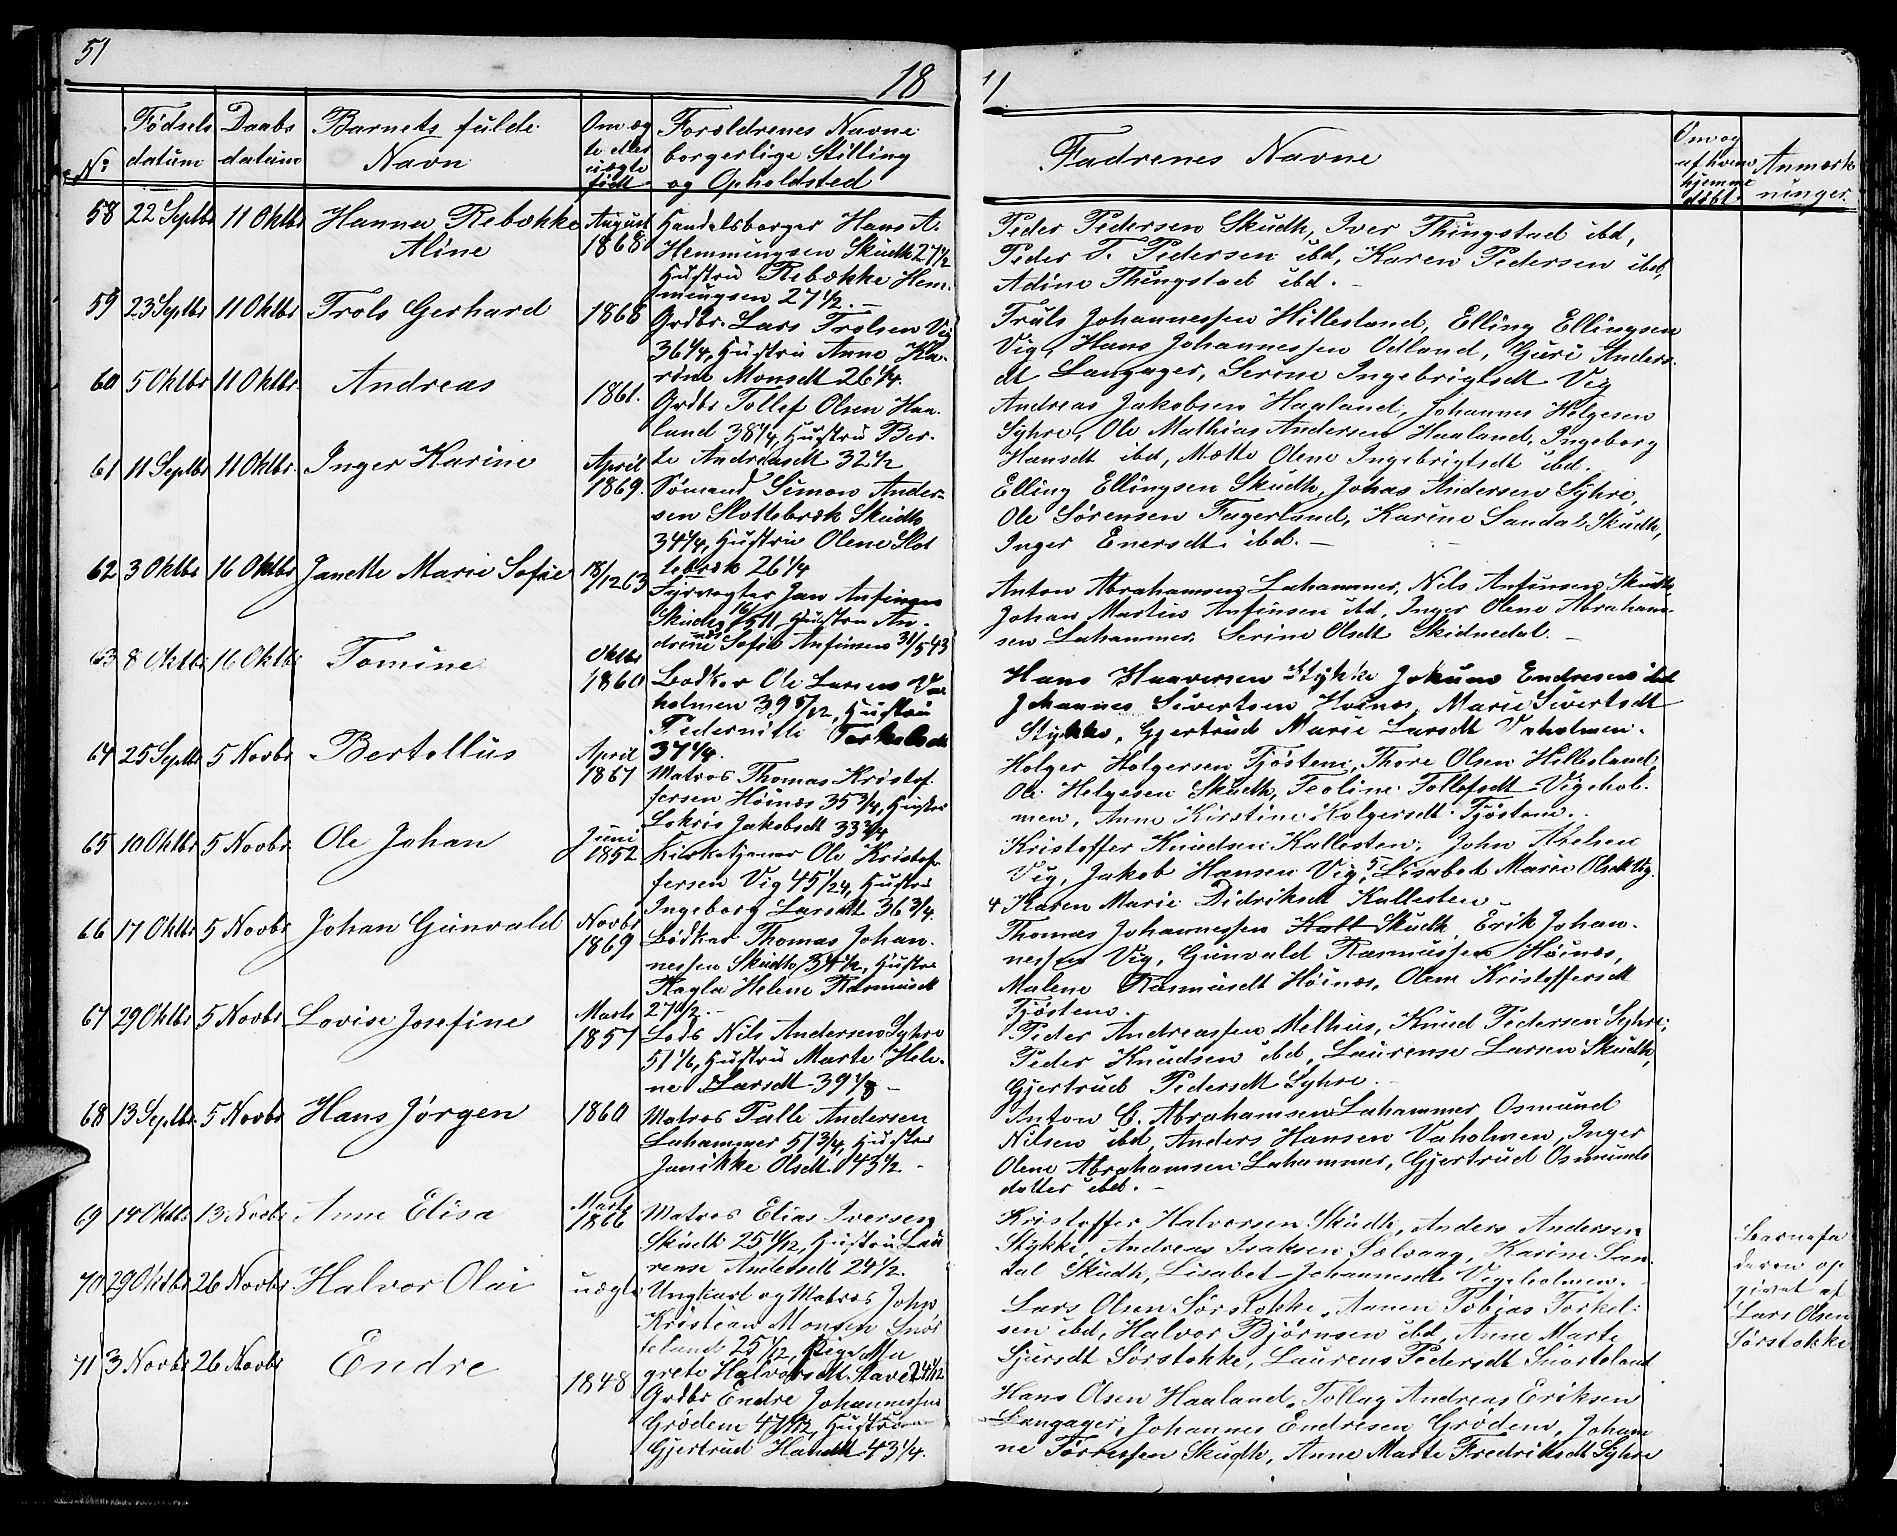 51
18
71
Nº
Fødsels datum
Daabs datum
Barnets fulde Navn
Om ægte eller uægte født
Forældrenes Navne borgerlige Stilling og Opholdsted
Fadrenes Navne
Om og af hvem hjemmedøbt
Anmærkninger
58 22 Septbr 11 Oktbr Hanna Rebække Aline August 1868
Handelsborger Hans A.
Hemmingsen Skudh 27 1/2
Hustru Rebække Hem-
mingsen 27 1/2. —
Peder Pedersen Skudh, Iver Thingstad ibd,
Peder T. Pedersen ibd, Karen Pedersen ibd,
Adine Thingstad ibd. —
59 23 Septbr 11 Oktbr Trols Gerhard 1868
Grdbr. Lars Trolsen Vig
36 1/4, Hustru Anne Ka-
rine Monsdt 26 1/4.
Truls Johannessen Hillesland, Elling Ellingsen
Vig, Hans Johannessen Odland, Guri Anders-
dt Langager, Serine Ingebrigtsdt Vig
60 5 Oktbr 11 Oktbr Andreas 1861.
Grdbr Tollef Olsen Haa-
land 38 1/4, Hustru Ber-
te Andreasdt 32 1/2
Andreas Jakobsen Haaland, Johannes Helgesen
Syhre, Ole Mathias Andersen Haaland, Ingeborg
Hansdt ibd, Mætte Olene Ingebrigtsdt ibd.
61 11 Septbr 11 Oktbr. Inger Karine April 1869.
Sømand Simon Ander-
sen Slottebræk Skudh
34 1/4, Hustru Olene Slot
tebræk 26 1/4
Elling Ellingsen Skudh, Johas Andersen Syhre,
Ole Sørensen Fagerland, Karine Sandal Skudh,
Inger Enersdt ibd. —
62 3 Oktbr 16 Oktbr Janette Marie Sofie 18/12 63
Fyrvogter Jan Anfinsen
Hustru An-
drine Sofie Anfinsen 31/5-43
Anton Abrahamsen Lahammer, Nils Anfinsen Skudh
Johan Martin Anfinsen ibd, Inger Olene Abraham-
sen Lahammer, Serine Olsdt Skidnedal. —
63 8 Oktbr 16 Oktbr Tomine Oktbr 1860
Bødker Ole Larsen Va-
holmen 39 5/12, Hustru
Pedernille Torkelsdt
37 1/4.
Hans Haaversen Stykke Jokum Endresen ibd
Johannes Sivertsen Høinæs, Marie Sivertsdt
Stykke, Gjertrud Marie Larsdt Vaholmen.
64 25 Septbr 5 Novbr Bertollus April 1867
Matros Thomas Kristof-
fersen Høinæs 35 3/4, Hustru
Lokris Jakobsdt 33 3/4
Holger Holgersen Tjøstem, Thore Olsen Hillesland,
Ole Helgesen Skudh, Teoline Tollefsdt Vigehol-
men, Anne Kirstine Holgersdt Tjøstem.
65 10 Oktbr 5 Novbr Ole Johan Juni 1852
Kirketjener Ole Kristof-
fersen Vig 45 1/24, Hustru
Ingeborg Larsdt 36 3/4.
Kristoffer Knudsen Kallesten, John Axelsen
Vig, Jakob Hansen Vig, Lisabet Marie Olsdt Vig.
Karen Marie Didriksdt Kallesten
66 17 Oktbr 5 Novbr Johan Gunvald Novbr 1869
Bødker Thomas Johan-
nessen Skudh 34 1/2, Hustru
Ragla Helene Rasmusdt
27 1/2. —
Thomas Johannessen Skudh, Erik Johan-
nessen Vig, Gunvald Rasmussen Høinæs,
Malene Rasmusdt Høinæs, Olene Kristoffersdt
Tjøstem.
67 29 Oktbr 5 Novbr Lovise Josefine Marts 1857
Lods Nils Andersen Syhre
51 1/6, Hustru Marte Hele-
ne Larsdt 39 1/8 —
Peder Andreassen Melhus, Knud Pedersen Syhre,
Peder Knudsen ibd, Laurense Larsen Skudh,
Gjertrud Pedersdt Syhre. —
68 13 Septbr. 5 Novbr Hans Jørgen 1860
Matros Palle Andersen
Lahammer 51 3/4, Hustru
Janikke Olsdt. 43 1/2 —
Anton C. Abrahamsen Lahammer Osmund
Nilsen ibd, Anders Hansen Vaholmen, Inger
Olene Abrahamsen Lahammer, Gjertrud Osmunds
datter ibd. —
69 14 Oktbr 13 Novbr Anne Elisa Marts 1866
Matros Elias Iversen
Skudh 25 1/12, Hustru Lau
rense Andersdt 24 1/2.
Kristoffer Halvorsen Skudh, Anders Andersen
Stykke, Andreas Isaksen Sælvaag, Karine San-
dal Skudh, Lisabet Johannesdt Vigeholmen. —
70 29 Oktbr 26 Novbr Halvor Olai uægte
Ungkarl og Matros John
Kristian Monsen Snør
teland 25 1/12, Pige Ma
grete Halvorsdt Stave 24 1/2
Lars Olsen Sørstokke, Aanen Tobias Torkel-
sen ibd, Halvor Bjørnsen ibd, Anne Marte
Sjursdt Sørstokke, Laurens Pedersdt Snørteland
Barnefa
deren op
givet af
Lars Olsen
Sørstokke
71 3 Novbr 26 Novbr Endre 1848
Grdbr Endre Johannessen
Grødem 47 1/12, Hustru
Gjertrud Hansdt 43 1/4.
Hans Olsen Haaland, Tollag Andreas Eriksen
Langager, Johannes Endresen Grødem, Johan
ne Tørressen Skudh, Anne Marte Fredriksdt Syhre